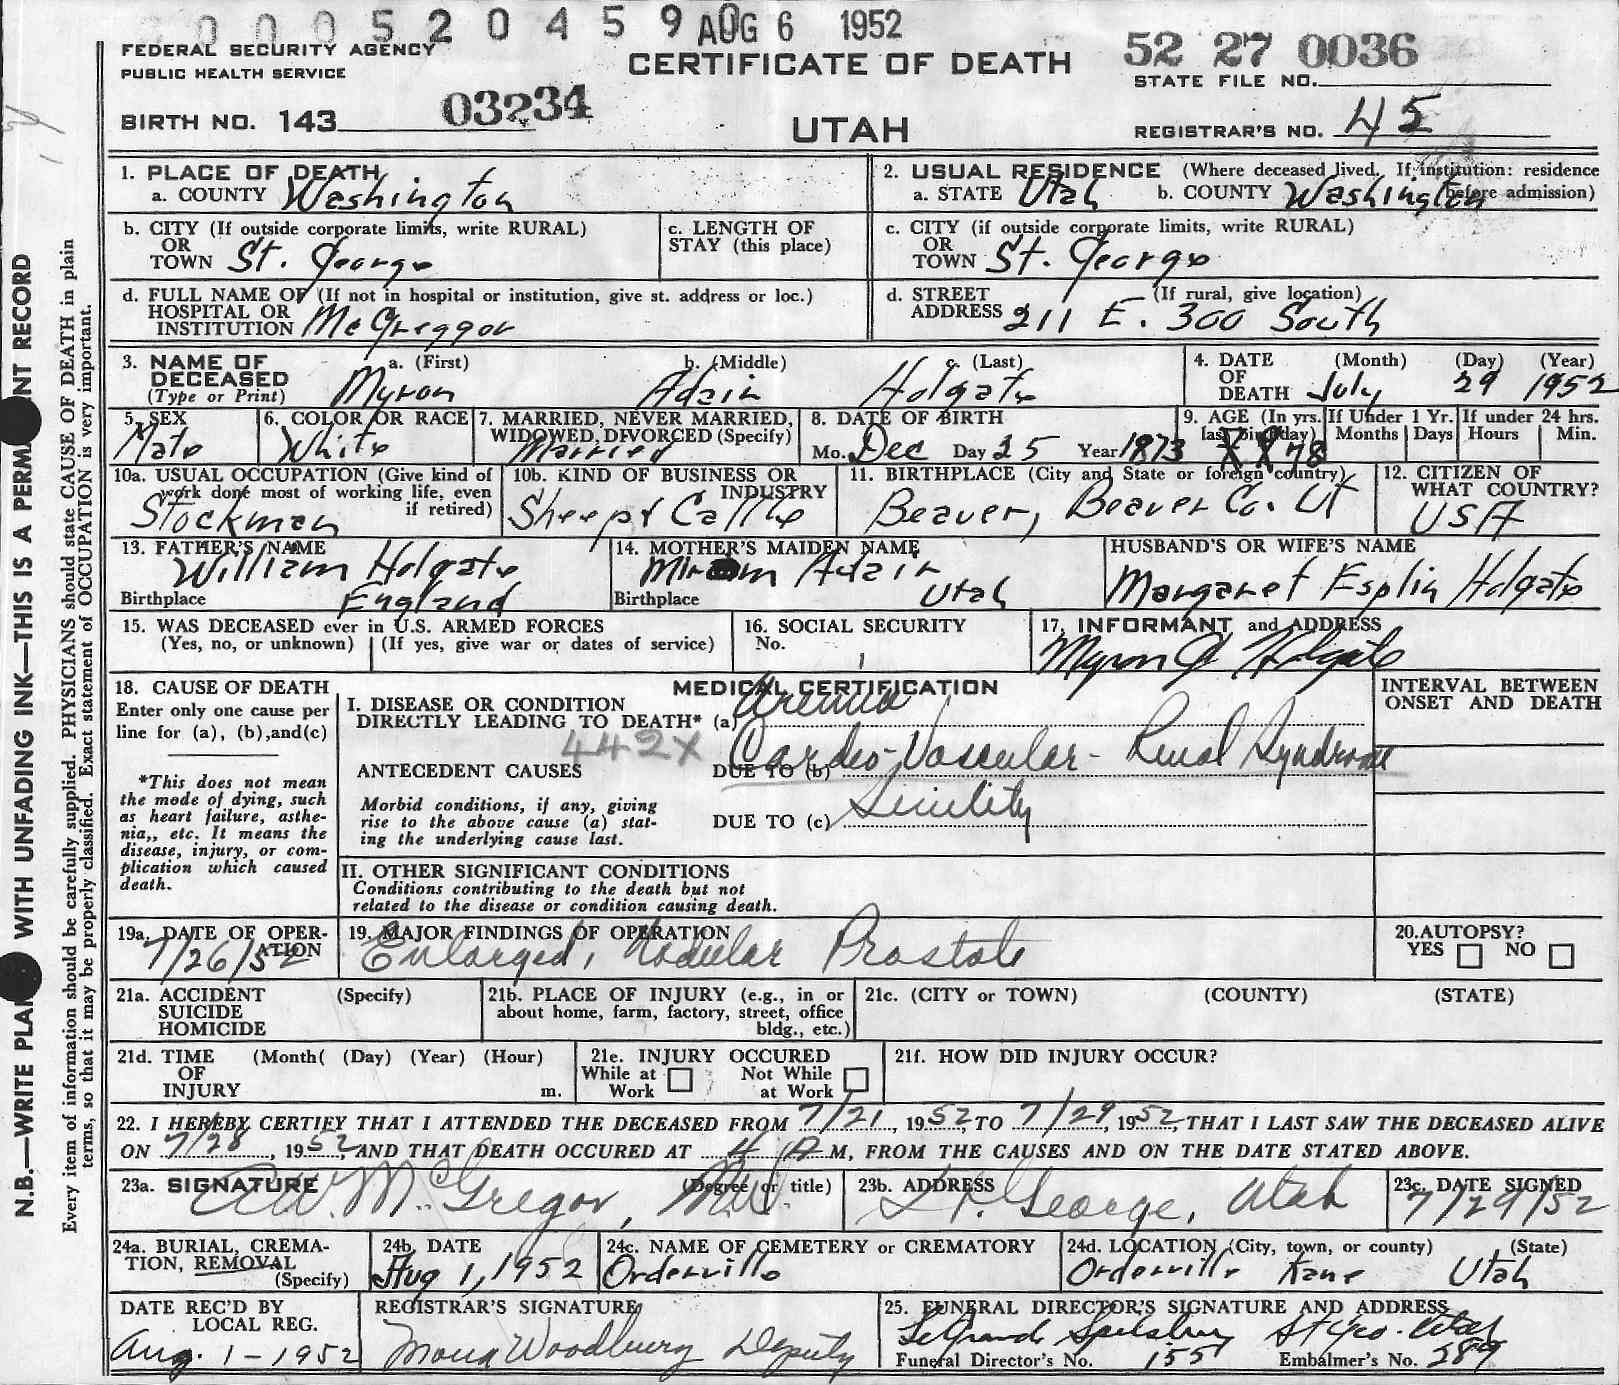 000520459 AUG 6 1952
FEDERAL SECURITY AGENCY
PUBLIC HEALTH SERVICE
CERTIFICATE OF DEATH
52 27 0036
STATE FILE NO.
BIRTH NO. 143 03234
UTAH
REGISTRAR'S NO. 45
1. PLACE OF DEATH
a. COUNTY Washington
2. USUAL RESIDENCE (Where deceased lived. If institution: residence before admission)
a. STATE Utah b. COUNTY Washington
b. CITY (If outside corporate limits, write RURAL)
OR
TOWN St. George
c. LENGTH OF
STAY (this place)
c. CITY (if outside corporate limits, write RURAL)
OR
TOWN St. George
d. FULL NAME OF (If not in hospital or institution, give st. address or loc.)
HOSPITAL OR
INSTITUTION McGreggor
d. STREET (If rural, give location)
ADDRESS 211 E. 300 South
3. NAME OF DECEASED
(Type or Print)
a. (First) b. (Middle) c. (Last)
Myron Adair Holgate
4. DATE OF DEATH (Month) (Day) (Year)
July 29 1952
5. SEX
Male
6. COLOR OR RACE
White
7. MARRIED, NEVER MARRIED,
WIDOWED, DIVORCED (Specify)
Married
8. DATE OF BIRTH
Mo. Dec Day 25 Year 1873
9. AGE (In yrs. last birthday) 78
If Under 1 Yr. Months Days
If under 24 hrs. Hours Min.
10a. USUAL OCCUPATION (Give kind of
work done most of working life, even
if retired)
Stockman
10b. KIND OF BUSINESS OR
INDUSTRY
Sheep & Cattle
11. BIRTHPLACE (City and State or foreign country)
Beaver, Beaver Co. Ut
12. CITIZEN OF
WHAT COUNTRY?
USA
13. FATHER'S NAME
William Holgate
Birthplace England
14. MOTHER'S MAIDEN NAME
Adair
Birthplace Utah
HUSBAND'S OR WIFE'S NAME
Margaret Esplin Holgate
15. WAS DECEASED ever in U.S. ARMED FORCES
(Yes, no, or unknown) (If yes, give war or dates of service)
16. SOCIAL SECURITY
No.
17. INFORMANT and ADDRESS
Myron Holgate
18. CAUSE OF DEATH
Enter only one cause per
line for (a), (b),and(c)
*This does not mean
the mode of dying, such
as heart failure, asthe-
nia,, etc. It means the
disease, injury, or com-
plication which caused
death.
MEDICAL CERTIFICATION
I. DISEASE OR CONDITION
DIRECTLY LEADING TO DEATH* (a) Uremia
442X
ANTECEDENT CAUSES
DUE TO (b) Cardio-Vascular-Renal Syndrome
Morbid conditions, if any, giving
rise to the above cause (a) stat-
ing the underlying cause last.
DUE TO (c) Senility
INTERVAL BETWEEN
ONSET AND DEATH
II. OTHER SIGNIFICANT CONDITIONS
Conditions contributing to the death but not
related to the disease or condition causing death.
19a. DATE OF OPER-
ATION
7/26/52
19. MAJOR FINDINGS OF OPERATION
Enlarged, Nodular Prostate
20. AUTOPSY?
YES NO
21a. ACCIDENT (Specify)
SUICIDE
HOMICIDE
21b. PLACE OF INJURY (e.g., in or
about home, farm, factory, street, office
bldg., etc.)
21c. (CITY or TOWN) (COUNTY) (STATE)
21d. TIME (Month( (Day) (Year) (Hour)
OF
INJURY m.
21e. INJURY OCCURED
While at Work Not While at Work
21f. HOW DID INJURY OCCUR?
22. I HEREBY CERTIFY THAT I ATTENDED THE DECEASED FROM 7/21, 1952, TO 7/29, 1952 THAT I LAST SAW THE DECEASED ALIVE
ON 7/28, 1952, AND THAT DEATH OCCURED AT 4 A M, FROM THE CAUSES AND ON THE DATE STATED ABOVE.
23a. SIGNATURE (Degree or title)
McGregor, M.D.
23b. ADDRESS
St. George, Utah
23c. DATE SIGNED
7/29/52
24a. BURIAL, CREMA-
TION, REMOVAL
(Specify)
24b. DATE
Aug 1, 1952
24c. NAME OF CEMETERY or CREMATORY
Orderville
24d. LOCATION (City, town, or county) (State)
Orderville Kane Utah
DATE REC'D BY
LOCAL REG.
Aug. 1-1952
REGISTRAR'S SIGNATURE
Mona Woodbury Deputy
25. FUNERAL DIRECTOR'S SIGNATURE AND ADDRESS
LeGrande Spilsbury St Geo. Utah
Funeral Director's No. 155 Embalmer's No. 289
N.B.—WRITE WITH UNFADING INK—THIS IS A RECORD
Every item of information should be carefully supplied. PHYSICIANS should state CAUSE OF DEATH in plain
terms, so that it may be properly classified. Exact statement of OCCUPATION is very important.